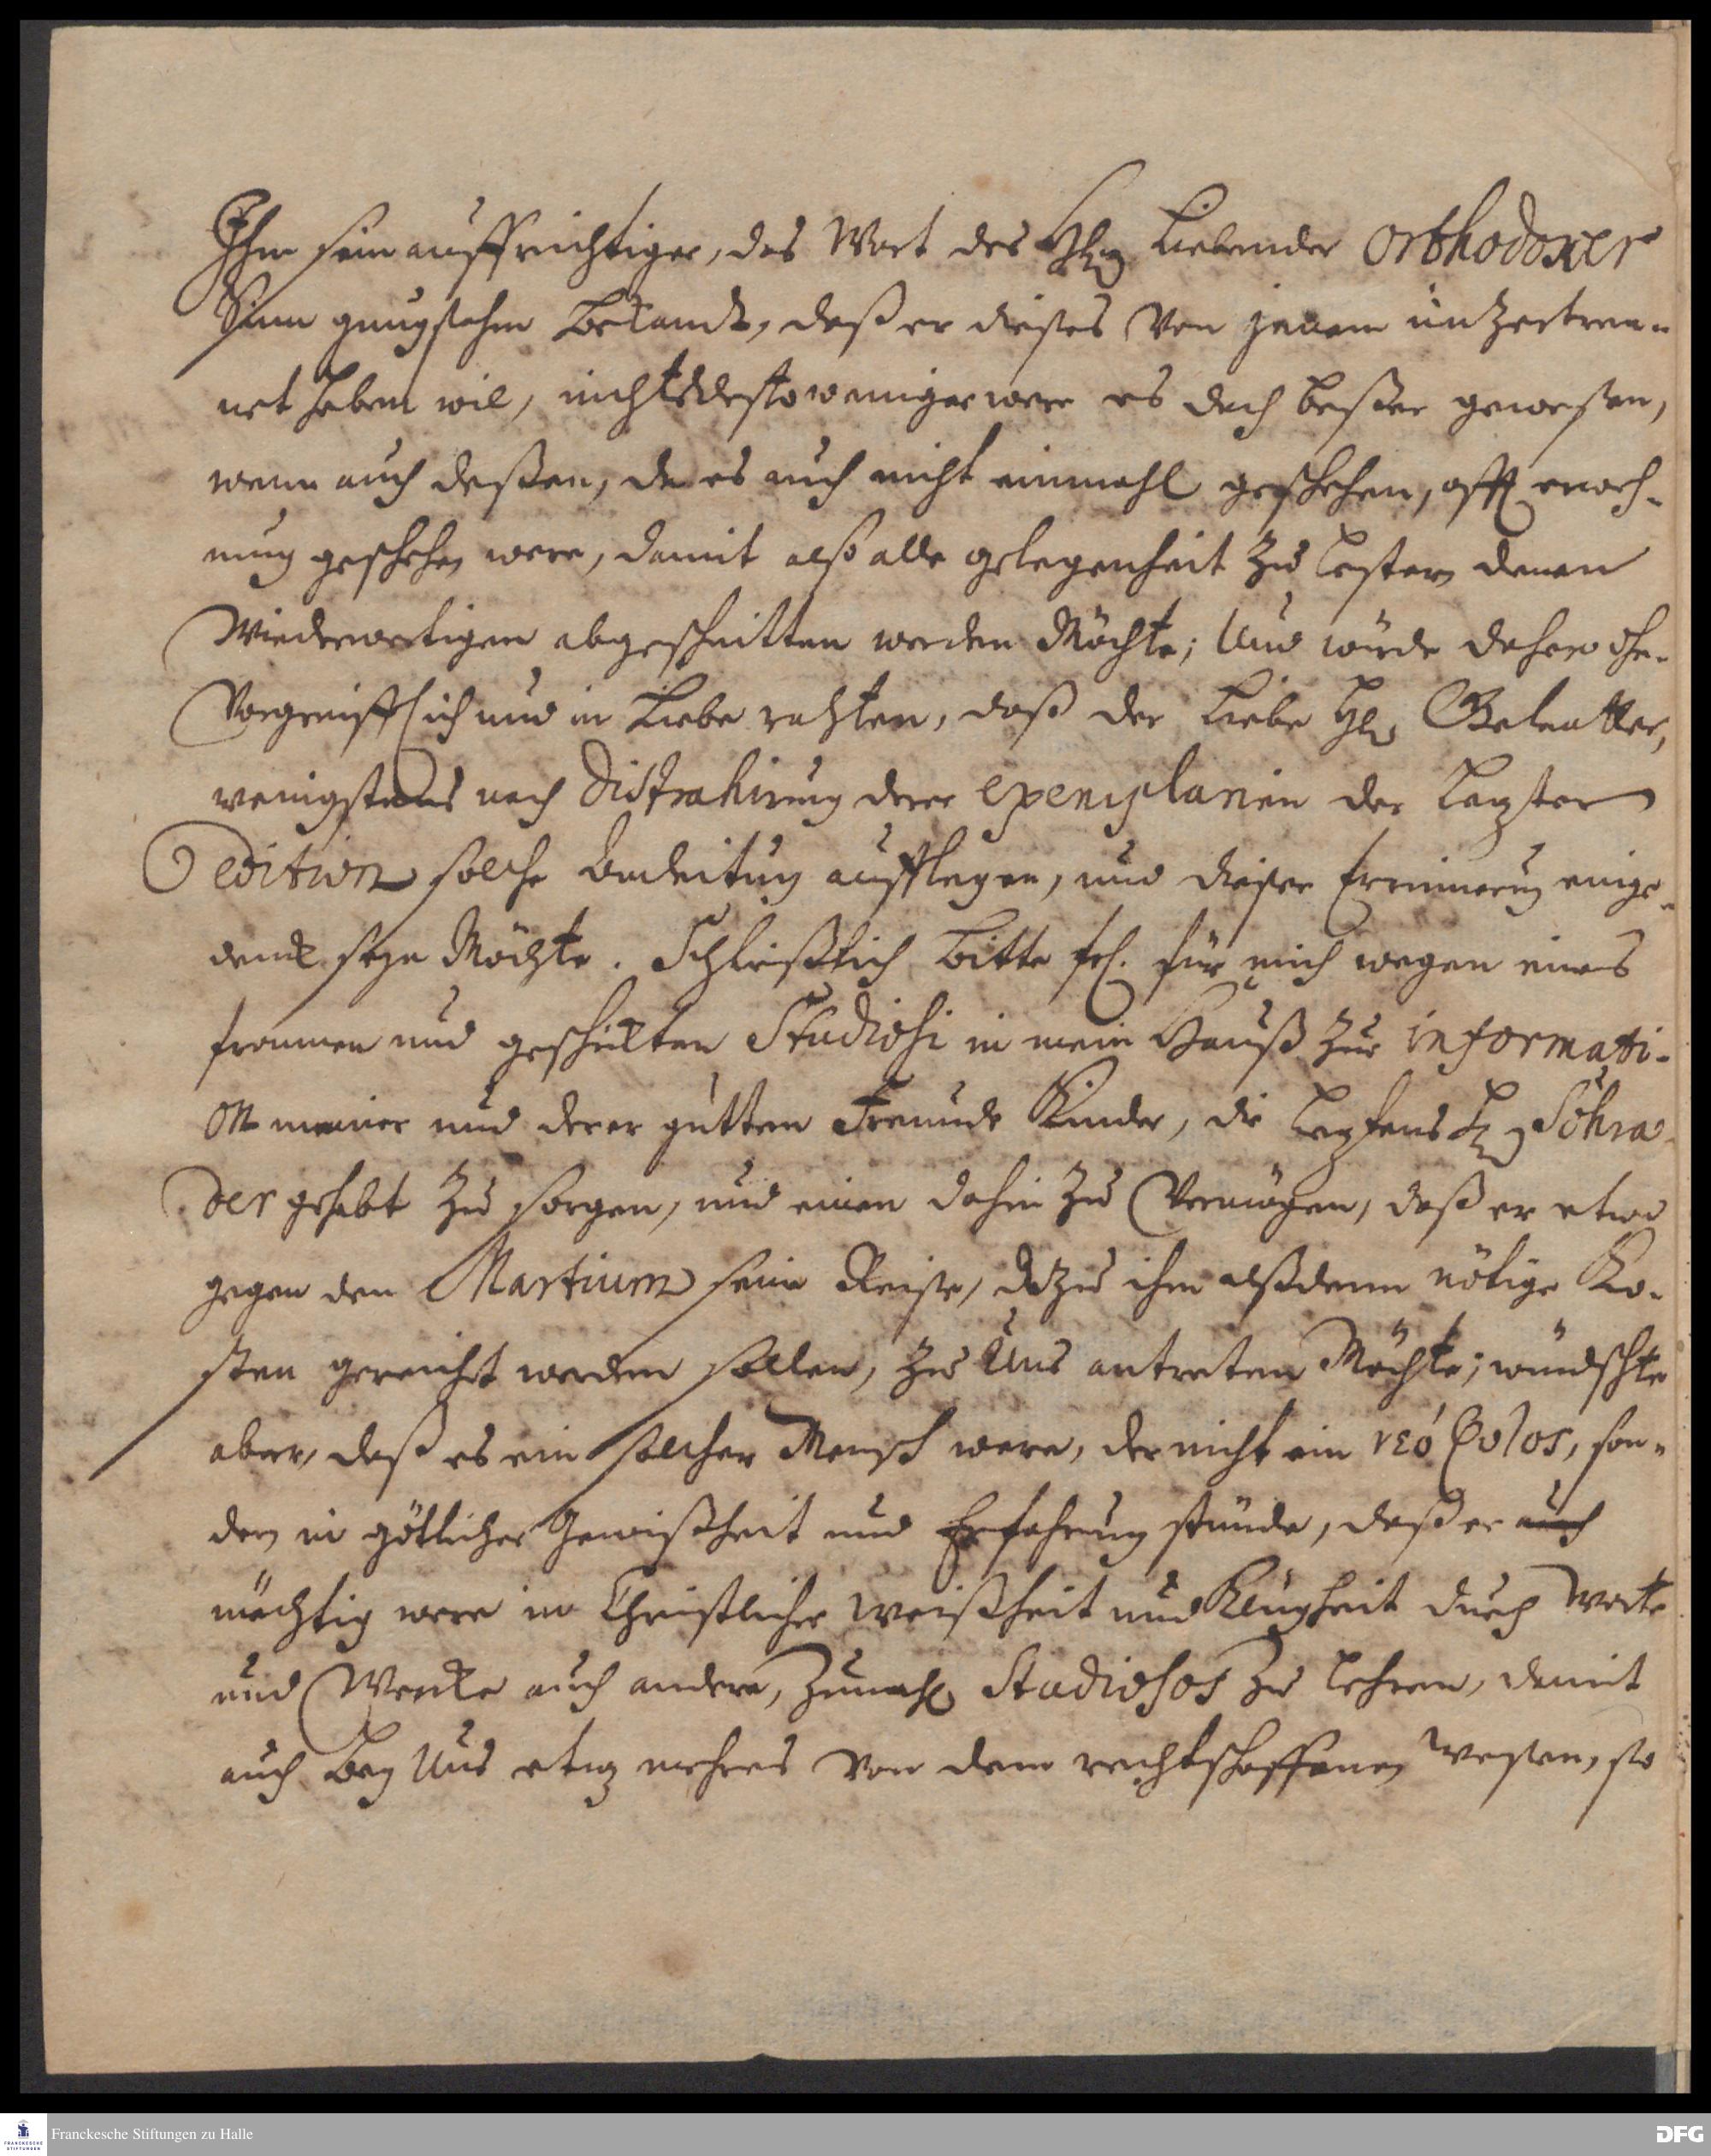 Ihm sein auffrichtiger, das Wort des HErrn liebender orthodoxer
Sinn gnugsahm bekandt, daß er dieses von jenem unzertren-
net haben wil, nichtsdestoweniger were es doch beßer geweßen,
wenn auch deßen, da es auch nicht einmahl geschehen, offt erweh-
nung geschehen were, damit alß alle gelegenheit zu lestern denen
Wiederwertigen abgeschnitten werden Möchte; Und würde dahero ohn-
vorgreifflich und in Liebe rahten, daß der Liebe HE. Gevatter,
wenigstens nach distrahirung derer exemplarien der Lezten
edition solche anleitung aufflegen, und dießer Erinnerung einge-
denck seyn Möchte. Schließlich bitte für mich wegen eines
frommen und geschickten Studiosi in mein Hauß zur informati-
on meiner und derer gutten Freunde Kinder, die leztens H. Schra-
der gehabt zu sorgen, und einen dahin zu Vermögen, daß er etwa
gegen den Martium seine Reise, dazu ihm alßdenn nötige Ko-
sten gereichet werden sollen, zu Uns antreten Möchte; wündschte
aber, daß es ein solcher Mensch were, der nicht ein νεόφυτος, son-
dern in göttlicher Gewißheit und Erfahrung stünde, daß er auch
mächtig were in Christlicher Weißheit und Klugheit durch Worte
und Wercke auch andere, zumahl Studiosos zu lehren, damit
auch bey Uns etwz mehres von dem rechtschaffenen Wesen, so
Franckesche Stiftungen zu Halle
FRANCKESCHE STIFTUNGEN
DFG